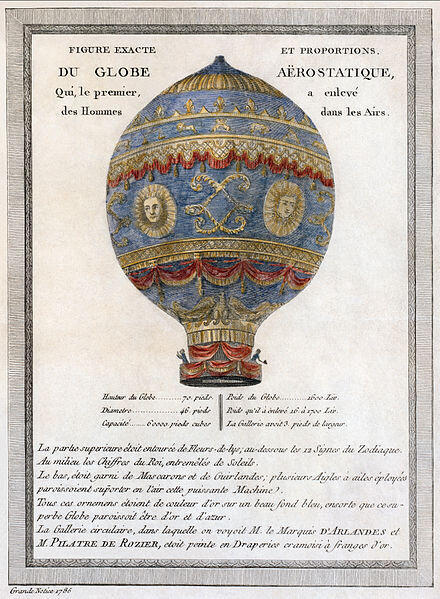 FIGURE EXACTE ET PROPORTIONS,
DU GLOBE AËROSTATIQUE,
Qui, le premier, a enlevé
des Hommes dans les Airs.
Hauteur du Globe..........70. pieds
Diametre..............46. pieds
Capacité......60000 pieds cubes
Poids du Globe..........1600 Liv.
Poids qu'il a énlevé 16 à 1700 Liv.
La Gallerie avoit 3. pieds de largeur.
La partie superieure étoit entourée de Fleurs-de-lys, au-dessous les 12 Signes du Zodiaque.
Au milieu les Chiffres du Roi, entremêlés de Soleils.
Le bas, étoit garni de Mascarons et de Guirlandes; plusieurs Aigles à ailes éployées
paroissoient supórter en l'air cette puissante Machine).
Tous ces ornemens étoient de couleur d'or sur un beau fond bleu, ensorte que ce su-
perbe Globe paroissoit être d'or et d'azur.
La Gallerie circulaire, dans laquelle on voyoit M. le Marquis D'ARLANDES et
M. PILATRE DE ROZIER, etoit peinte en Draperies cramoisi à franges d'or.
Grande Notice 1786